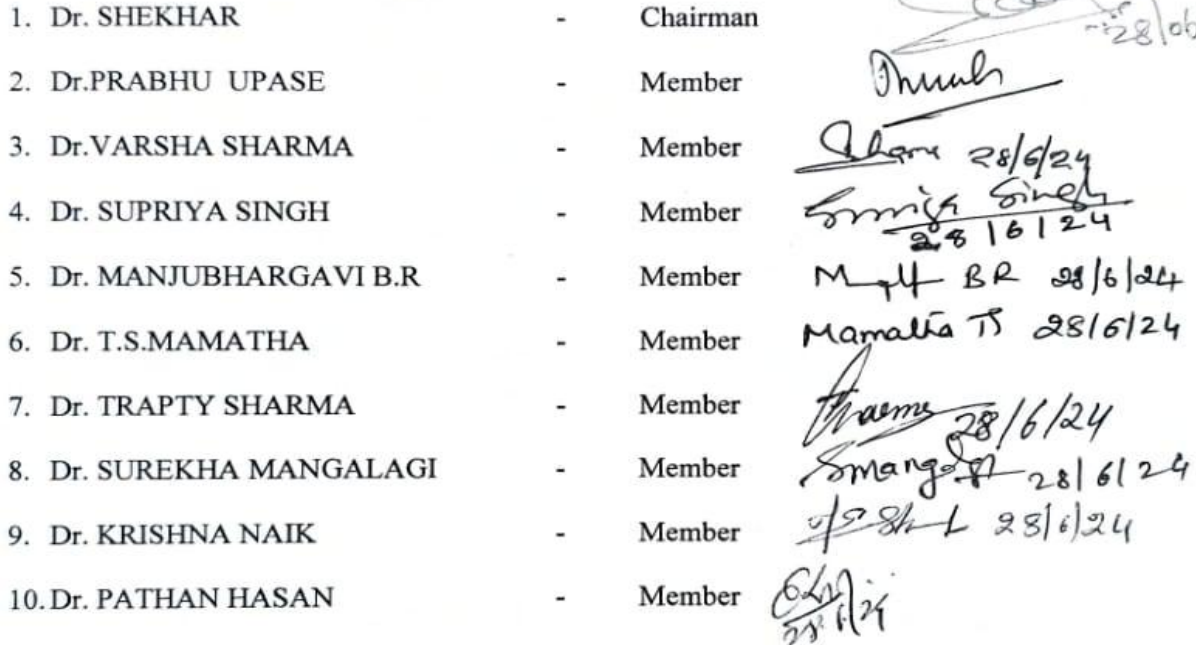 1. Dr. SHEKHAR - Chairman 28/06
2. Dr.PRABHU UPASE - Member
3. Dr.VARSHA SHARMA - Member 28/6/24
4. Dr. SUPRIYA SINGH - Member Singh
28/6/24
5. Dr. MANJUBHARGAVI B.R - Member BR 28/6/24
6. Dr. T.S.MAMATHA - Member Mamatha TS 28/6/24
7. Dr. TRAPTY SHARMA - Member 28/6/24
8. Dr. SUREKHA MANGALAGI - Member 28/6/24
9. Dr. KRISHNA NAIK - Member 28/6/24
10. Dr. PATHAN HASAN - Member